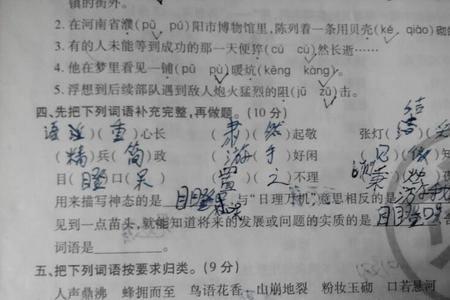 镇的街外。
2.在河南省濮(pū pú)阳市博物馆里,陈列着一条用贝壳(ké qiào)砌
3.有的人未能等到成功的那一天便猝(cù cù)然长逝……
4.他在梦里看见一铺(pū pù)暖炕(kēng kàng)。
5.浮想到后续部队遇到敌人炮火猛烈的阻(jū zǔ)击。
四、先把下列词语补充完整,再做题。(10分)
语(重)心长 (肃)(然)起敬 张灯(结)
(精)兵(简)政 (游)(手)好闲
目(瞪)口(呆) (置)(之)不理
用来描写神态的是目瞪口呆,与“日理万机”意思相反的是游手
见到一点苗头,就能知道将来的发展或问题的实质的是目瞪口呆
词语是________。
五、把下列词语按要求归类。(9分)
人声鼎沸 蜂拥而至 鸟语花香 山崩地裂 粉妆玉砌 口若悬河